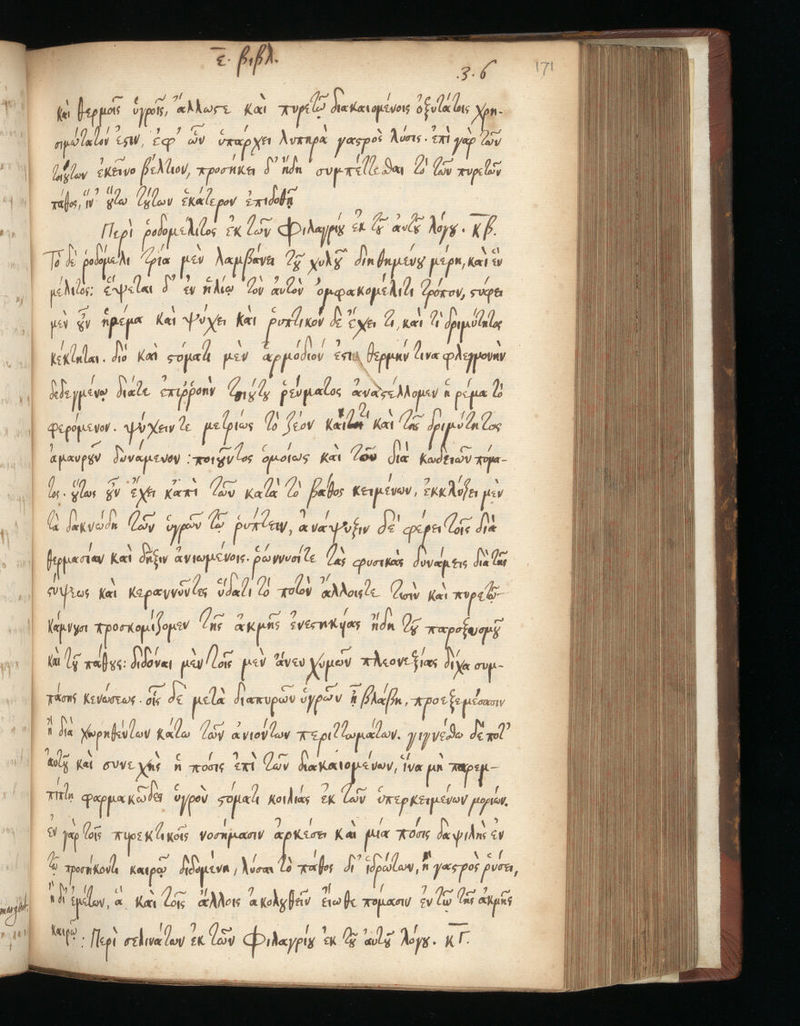 ε. βιβλ.
3·6 171
καὶ θερμοῖς ὑγροῖς, ἄλλωστε καὶ πυρετῷ διακαιομένοις ὀξυτάτοις χρη-
σιμώτατόν ἐστιν, ἐφ' ὧν ὑπάρχει λυπηρὰ γαστρὸς λύσις· ἐπὶ γὰρ τῶν
τοιούτων ἐκεῖνο βέλτιον, προσήκει δ' ἤδη συμπέττεσθαι τὸ τῶν πυρετῶν
πάθος, ἵν' οὕτω τούτων ἑκάτερον ἐπιδοθῇ
Περὶ ῥοδομέλιτος ἐκ τῶν Φιλαγρίου ἐκ τοῦ αὐτοῦ λόγου. κβ.
Τὸ δὲ ῥοδόμελι τρία μὲν λαμβάνει τοῦ χυλοῦ διηθημένου μέρη, καὶ ἓν
μέλιτος: ἕψεται δ' ἐν ἡλίῳ τὸν αὐτὸν ὀμφακομέλιτι τρόπον, στύφει
μὲν οὖν ἠρέμα καὶ ψύχει καὶ ῥυπτικὸν δὲ ἔχει τι, καὶ τι δριμύτητος
κέκτηται. διὸ καὶ στόματι μὲν ἁρμόδιόν ἐστι θερμήν τινα φλεγμονὴν
δεδεγμένῳ διάτε ἐπιῤῥοὴν τοιούτου ῥεύματος ἀναστέλλομεν ἠρέμα τὸ
φερόμενον. ψύχειν τε μετρίως τὸ ζέον καί τι καὶ τῆς δριμύτητος
ἀμαυροῦν δυνάμενον: ποιοῦντος ὁμοίως καὶ τοῦ διὰ κωδειῶν πόμα-
τος. οὕτως οὖν ἔχει κἀπὶ τῶν κατὰ τὸ βάθος κειμένων, ἐκκλύζει μὲν
τὰ δακνώδη τῶν ὑγρῶν τῷ ῥύπτειν, ἀνάψυξιν δὲ φέρει τοῖς διὰ
θερμασίαν καὶ δῆξιν ἀνιωμένοις. ῥώννυσί τε τὰς φυσικὰς δυνάμεις διὰ τῆς
στύψεως καὶ κεραννύντες ὕδατι τὸ ποτὸν ἄλλοις τε τισὶν καὶ πυρετῷ
κάμνουσι προσκομίζομεν τῆς ἀκμῆς ἐνεστηκυίας ἤδη τοῦ παροξυσμοῦ
καὶ τοῦ πάθους: διδόναι μὲν τοῖς μὲν ἄνευ χυμῶν πλεονεξίας δίχα συμ-
πάσης κενώσεως. οἷς δὲ μετὰ διαπυρῶν ὑγρῶν ἡ βλάβη, προεξεμέσασιν
ἢ διαχωρηθέντων κάτω τῶν ἀνιόντων περιττωμάτων. γιγνέσθω δέ ποτ'
αὐτοῦ καὶ συνεχὴς ἡ πόσις ἐπὶ τῶν διακαιομένων, ἵνα μὴ παρεμ-
πίπτῃ φαρμακῶδες ὑγρὸν στόματι κοιλίας ἐκ τῶν ὑπερκειμένων μορίων.
ἐν γὰρ τοῖς πυρεκτικοῖς νοσήμασιν ἀρκέσει καὶ μία πόσις δαψιλὴς ἐν
τῷ προσήκοντι καιρῷ διδομένη, λῦσαι τὸ πάθος δι' ἱδρώτων, ἢ γαστρὸς ῥύσει,
ἢ δι' ἐμέτων, ἃ καὶ τοῖς ἄλλοις ἀκολουθεῖν εἴωθε πόμασιν ἐν τῷ τῆς ἀκμῆς
καιρῷ: Περὶ σελινάτων ἐκ τῶν Φιλαγρίου ἐκ τοῦ αὐτοῦ λόγου. κΓ.